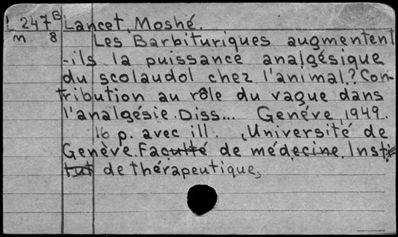 L 247 B Lancet, Moshé.
m 8 Les Barbituriques augmentent
-ils la puissance analgésique
du scolaudol chez l'animal? Con-
tribution au rôle du vague dans
l'analgésie. Diss... Genéve 1949.
16 p. avec ill. (Université de
Genève. Faculté de médecine. Insti-
tut de thérapeutique,